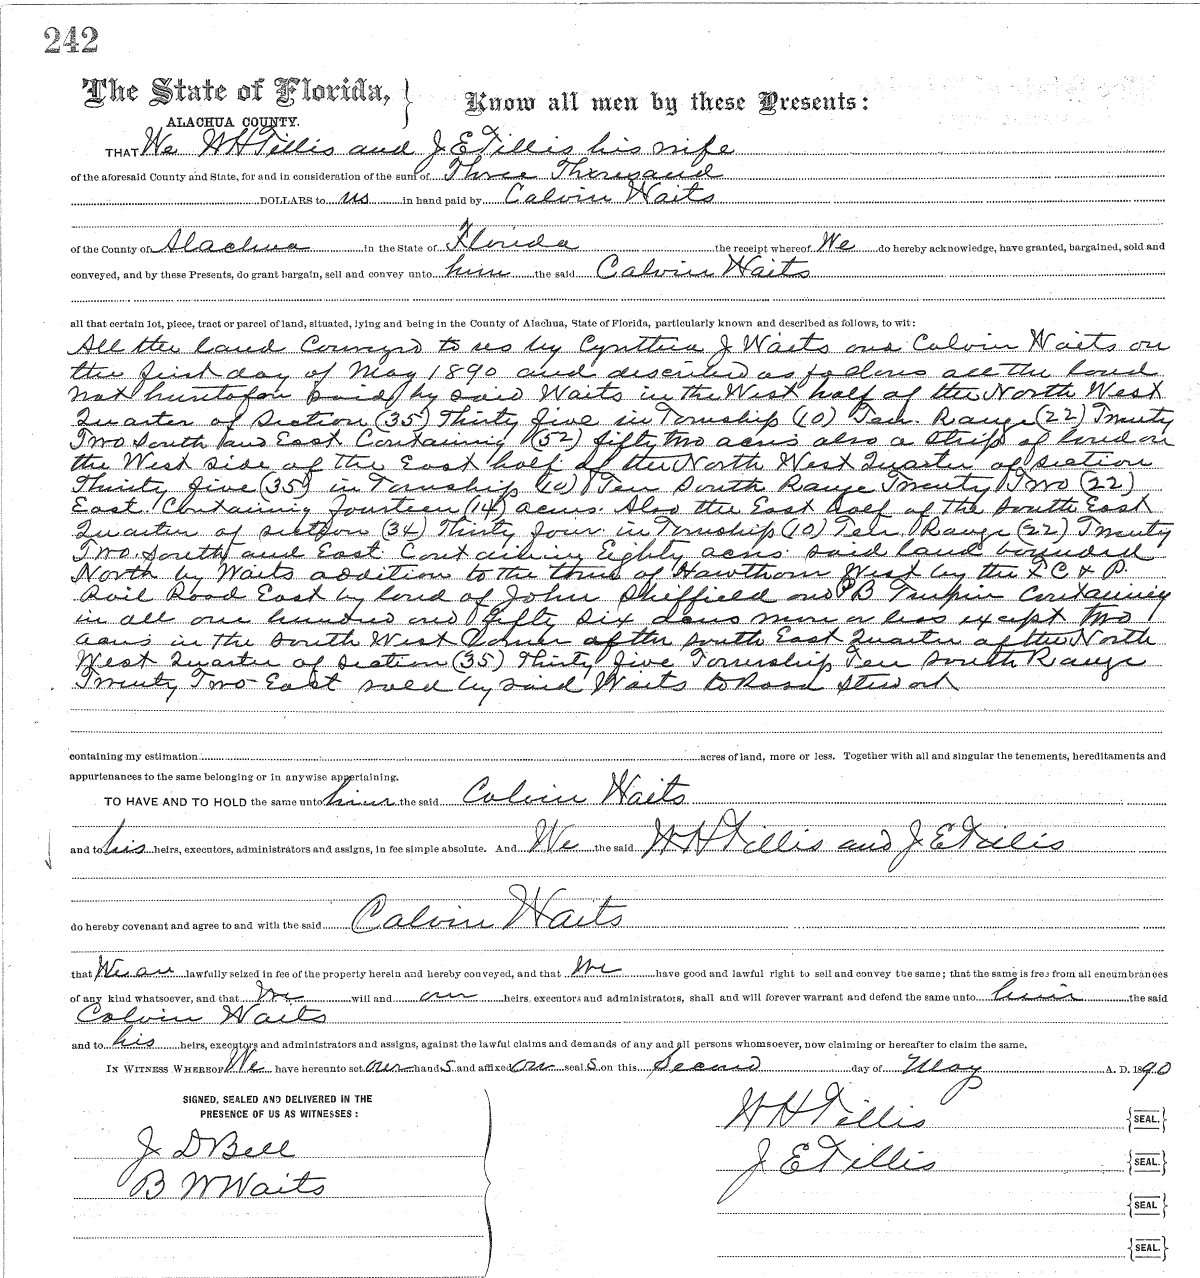 242
The State of Florida,
ALACHUA COUNTY.
Know all men by these Presents:
THAT We W H Tillis and J E Tillis his wife
of the aforesaid County and State, for and in consideration of the sum of Three Thousand
DOLLARS to us in hand paid by Calvin Waits
of the County of Alachua in the State of Florida the receipt whereof We do hereby acknowledge, have granted, bargained, sold and
conveyed, and by these Presents, do grant bargain, sell and convey unto him the said Calvin Waits
all that certain lot, piece, tract or parcel of land, situated, lying and being in the County of Alachua, State of Florida, particularly known and described as follows, to wit:
All the land Conveyed to us by Cynthia J Waits and Calvin Waits on
the first day of May 1890 and described as follows all the land
not heretofore sold by said Waits in the West half of the North West
Quarter of Section (35) Thirty five in Township (10) Ten Range (22) Twenty
Two South and East Containing (52) fifty two acres also a strip of land on
the West side of the East half of the North West Quarter of section
Thirty five (35) in Township (10) Ten South Range Twenty Two (22)
East Containing fourteen (14) acres Also the East half of the South East
Quarter of section (34) Thirty four in Township (10) Ten Range (22) Twenty
Two South and East Containing Eighty acres said land bounded
North by Waits addition to the town of Hawthorn West by the F C & P
Rail Road East by land of John Sheffield and B Containing
in all one hundred and fifty six acres more or less except two
acres in the South West Corner of the South East Quarter of the North
West Quarter of section (35) Thirty five Township Ten South Range
Twenty Two East sold by said Waits to Rosa Stewart
containing my estimation acres of land, more or less. Together with all and singular the tenements, hereditaments and
appurtenances to the same belonging or in anywise appertaining.
TO HAVE AND TO HOLD the same unto him the said Calvin Waits
and to his heirs, executors, administrators and assigns, in fee simple absolute. And We the said W H Tillis and J E Tillis
do hereby covenant and agree to and with the said Calvin Waits
that We are lawfully seized in fee of the property herein and hereby conveyed, and that We have good and lawful right to sell and convey the same; that the same is free from all encumbrances
of any kind whatsoever, and that We will and our heirs, executors and administrators, shall and will forever warrant and defend the same unto him the said
Calvin Waits
and to his heirs, executors and administrators and assigns, against the lawful claims and demands of any and all persons whomsoever, now claiming or hereafter to claim the same.
IN WITNESS WHEREOF We have hereunto set our hand s and affixed our seal s on this Second day of May A. D. 1890
SIGNED, SEALED AND DELIVERED IN THE
PRESENCE OF US AS WITNESSES:
J D Bell
B W Waits
W H Tillis SEAL.
J E Tillis SEAL.
SEAL
SEAL.